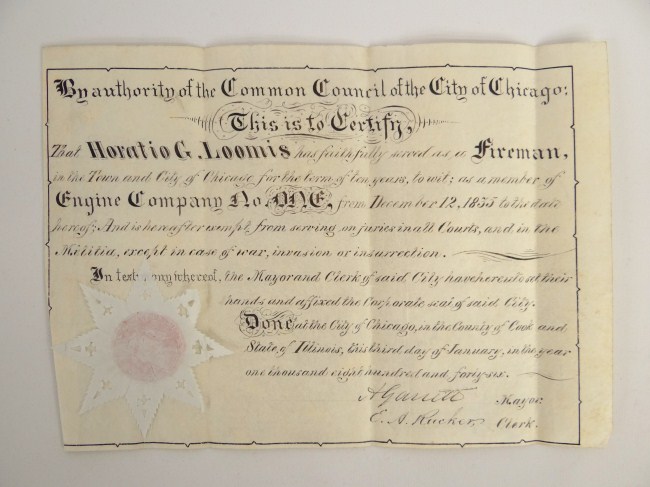 By authority of the Common Council of the City of Chicago:
This is to Certify,
That Horatio G. Loomis has faithfully served as a Fireman,
in the Town and City of Chicago for the term of ten years, to wit: as a member of
Engine Company No. ONE, from December 12, 1835 to the date
hereof: And is hereafter exempt from serving on juries in all Courts, and in the
Militia, except in case of war, invasion or insurrection.
In testimony whereof, the Mayor and Clerk of said City have hereunto set their
hands and affixed the Corporate seal of said City.
Done at the City of Chicago, in the County of Cook and
State of Illinois, this third day of January, in the year
one thousand eight hundred and forty-six.
A Garrett Mayor
E. A. Rucker Clerk.